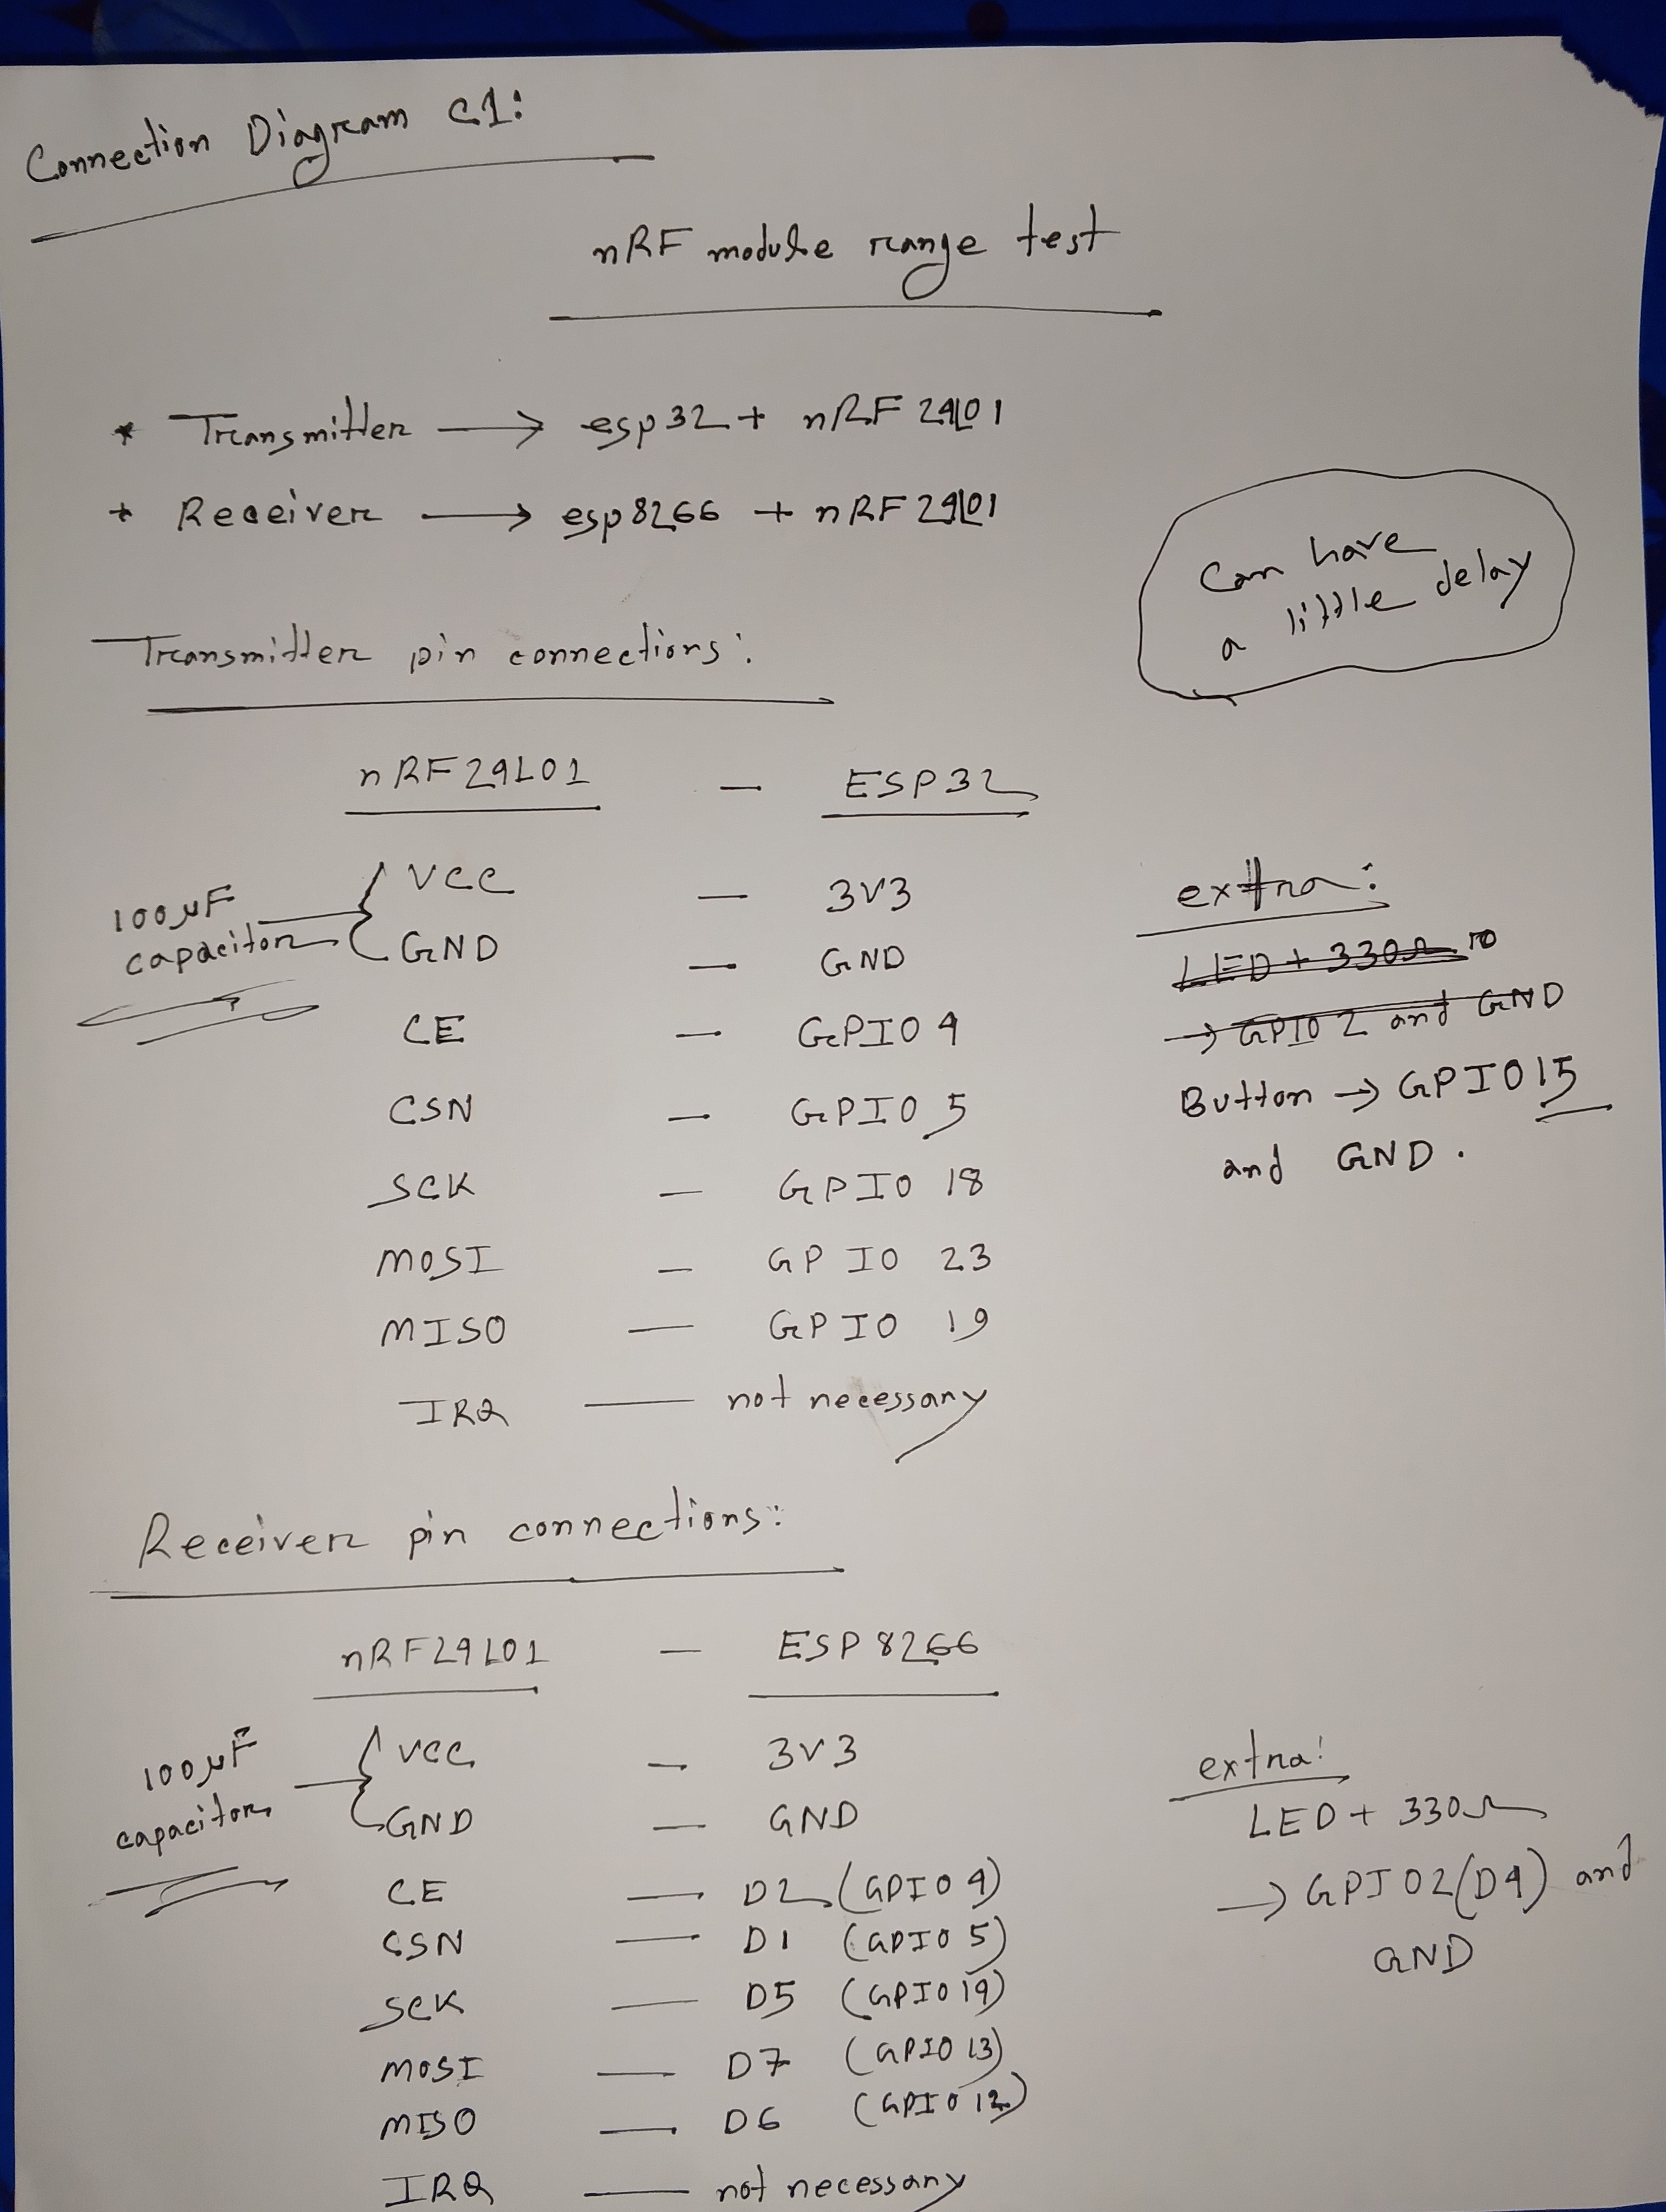 Connection Diagram C1:
nRF module range test
* Transmitter → esp32 + nRF24L01
* Receiver → esp8266 + nRF24L01
Can have
a little delay
Transmitter pin connections:
nRF24L01 — ESP32
100μF
capacitor
VCC — 3V3
GND — GND
CE — GPIO 4
CSN — GPIO 5
SCK — GPIO 18
MOSI — GPIO 23
MISO — GPIO 19
IRQ — not necessary
extra:
LED + 330Ω to
→ GPIO 2 and GND
Button → GPIO15
and GND.
Receiver pin connections:
nRF24L01 — ESP8266
100μF
capacitor
VCC — 3V3
GND — GND
CE — D2 (GPIO 4)
CSN — D1 (GPIO 5)
SCK — D5 (GPIO 14)
MOSI — D7 (GPIO 13)
MISO — D6 (GPIO 12)
IRQ — not necessary
extra:
LED + 330Ω
→ GPIO2(D4) and
GND